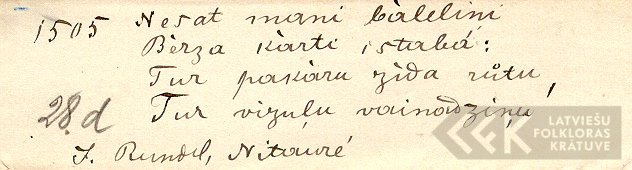 1505 Nesat mani bālelini
Bērza kārti istabá:
Tur pakāru zīda rūtu,
28.d Tur vizuļu vainadziņu!
J. Rundel, Nītaurē
LATVIEŠU
FOLKLORAS
KRĀTUVE